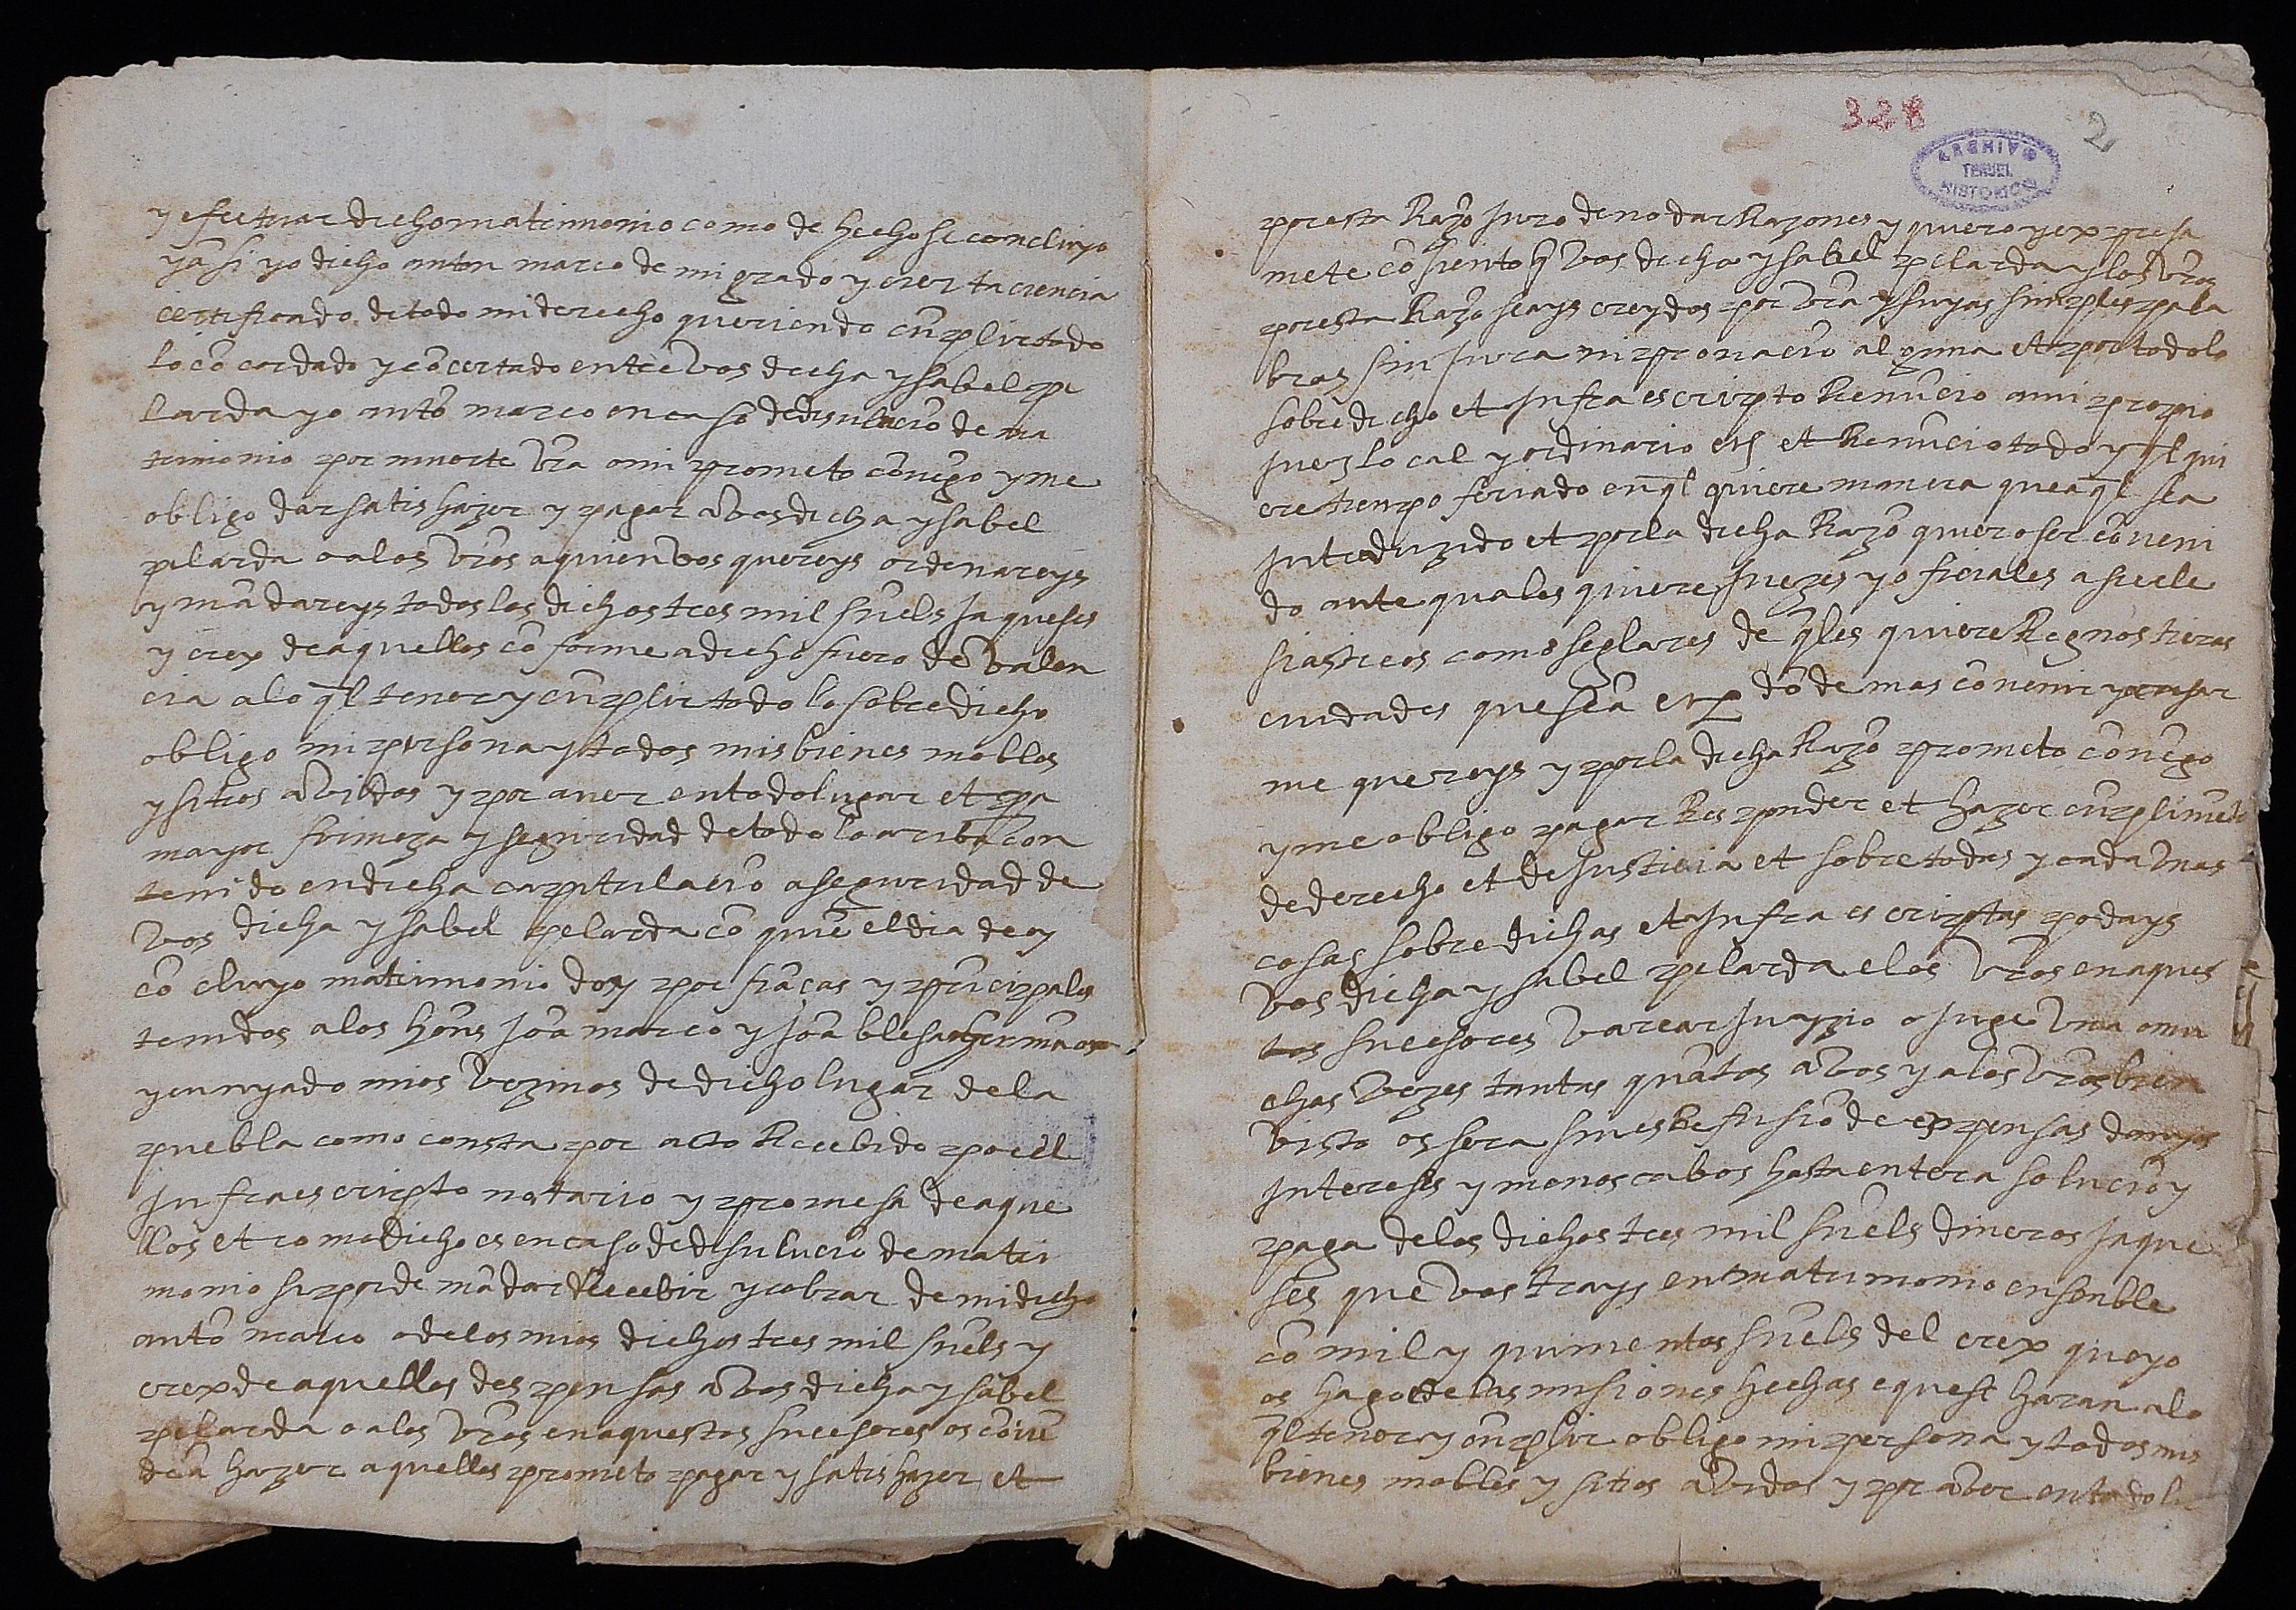 y efectuar dicho matimonio como de hecho se concluyo
y asi yo dicho anton marco de mi grado y cierta ciencia
certificado de todo mi derecho queriendo cũplir todo
lo cõcordado y cõcertado entre vos dicha ysabel pe
larda yo antõ marco en caso de disuluciõ de ma
trimonio por muerte vr̃a o mi prometo cõuẽgo y me
obligo dar satishazer y pagar a vos dicha ysabel
pelarda o a los vr̃os a quien vos quereys ordenareys
y mãdareys todos los dichos tres mil suelˢ jaqueses
y crex de aquellos cõforme a dicho fuero de valen
cia a lo q̃l tener y cũplir todo lo sobredicho
obligo mi persona y todos mis bienes mobles
y sitios avidos y por aver en todo lugar et pa
mayor firmeza y seguridad de todo lo arriba con
tenido en dicha capitulaciõ a seguridad de
vos dicha ysabel pelarda cõ quiẽ el dia de oy
cõcluyo matrimonio doy por fiãças y prĩcipales
tenidos a los honˢ joã marco y joã blesa hermãos
y cunyado mios vezinos de dicho lugar de la
puebla como consta por acto Recebido por el
jnfraescripto notario y promesa de aque
llos et como dicho es en caso de disuluciõ de matri
monio su por demãdar Recebir y cobrar de mi dicho
antõ marco o de los mios dichos tres mil suelˢ y
crex de aquellos despensas a vos dicha ysabel
pelarda o a los vr̃os en aquestos sucesores os cõuẽ
drã hazer aquellos prometo pagar y satishazer et
328
2
ARCHIVO
TERUEL
HISTORICO
por esta Razõ juro de no dar Razones y quiero y expresa
mẽte cõsiento q̃ vos dicha ysabel pelarda y los vr̃os
por esta Razõ seays creydos por vr̃a y suyas simples pala
bras sin jura ni provaciõ alguna et por todo lo
sobredicho et jnfra escripto Renũcio a mi propio
juez local y ordinario et Renũcio todo y q̃l qui
ere tiempo feriado en q̃l quiere manera que aq̃l sea
jntroduzido et por la dicha Razõ quiero ser cõveni
do ante quales quiere juezes y oficiales asi ecle
siasticos como seglares de q̃les quiere Regnos tieras
ciudades que seã dõde mas cõvenir y acusar
me querreys y por la dicha Razõ prometo cõuẽgo
y me obligo pagar Responder et hazer cũplimẽto
de derecho et de justicia et sobre todas y cada unas
cosas sobredichas et jnfra escriptas podays
vos dicha ysabel pelarda e los vr̃os en aques
tos sucesores variar juyzio o juge una o mu
chas vezes tantas quãtas a vos y a los vr̃os bien
visto os sera sines Refusiõ de expensas danyos
jntereses y menoscabos hasta entera soluciõ y
paga de los dichos tres mil suelˢ dineros jaque
ses que vos trays en matrimonio ensemble
cõ mil y quinientos suelˢ del crex que yo
os hago e de las misiones hechas e que se haran a lo
q̃l tener y cũplir obligo mi persona y todos mis
bienes mobles y sitios avidos y por aver en todo lu